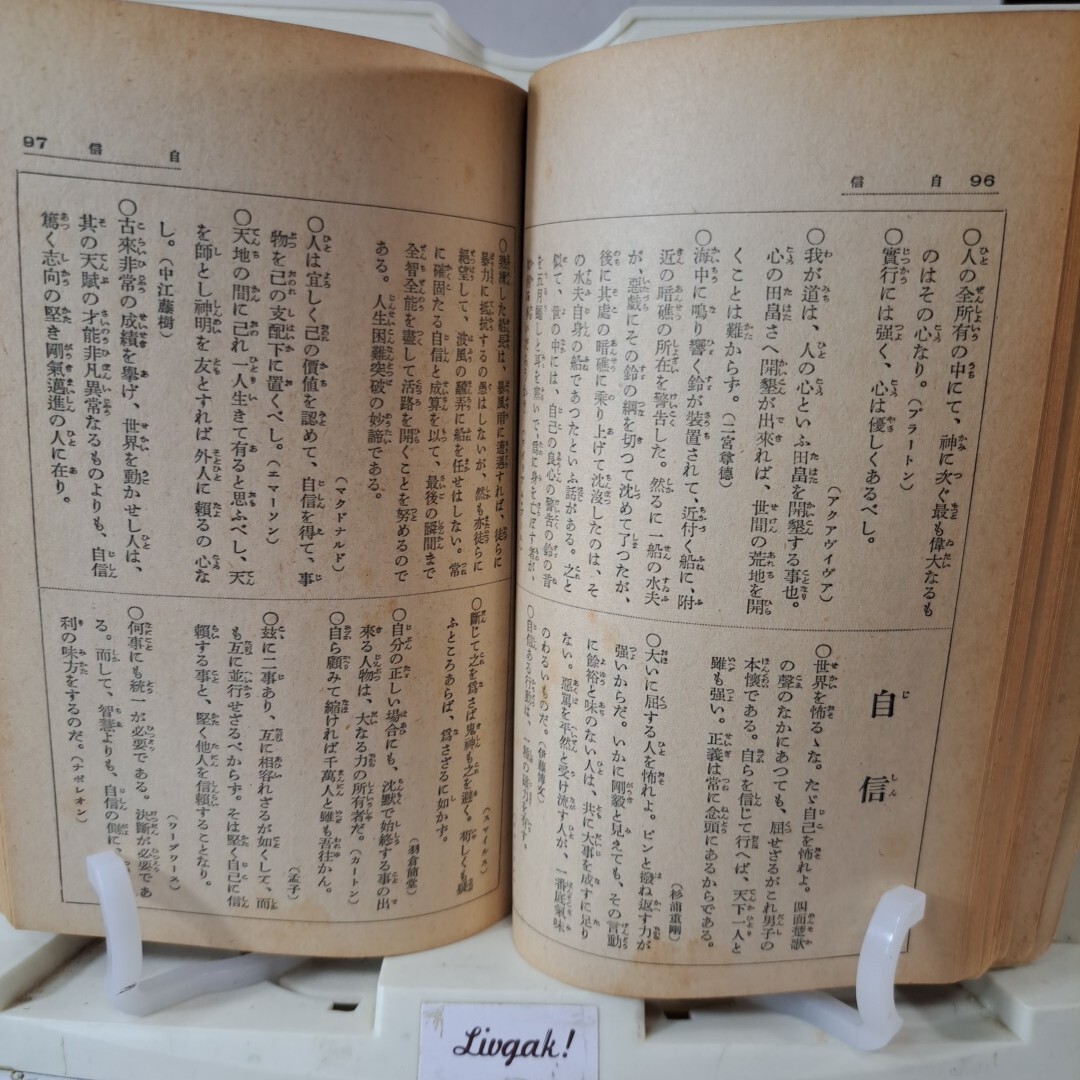 96 自信
〇人の全所有の中にて、神に次ぐ最も偉大なるも
のはその心なり。(プラートン)
〇實行には强く、心は優しくあるべし。
(アクアヴィヴア)
〇我が道は、人の心といふ田畠を開墾する事也。
心の田畠さへ開墾が出來れば、世間の荒地を開
くことは難からず。(二宮尊德)
〇海中に鳴り響く鈴が裝置されて、近付く船に、附
近の暗礁の所在を警告した。然るに一船の水夫
が、惡戲にその鈴の綱を切つて沈めて了つたが、
後に其處の暗礁に乘り上げて沈沒したのは、そ
の水夫自身の船であつたといふ話がある。之と
似て、世の中には、自己の良心の警告の鈴の音
自信
〇世界を怖るゝな。たゞ自己を怖れよ。四面楚歌
の聲のなかにあつても、屈せざるがこれ男子の
本懷である。自らを信じて行へば、天下一人と
雖も强い。正義は常に念頭にあるからである。
(杉浦重剛)
〇大いに屈する人を怖れよ。ピンと撥ね返す力が
强いからだ。いかに剛毅と見えても、その言動
に餘裕と味のない人は、共に大事を成すに足り
ない。惡罵を平然と受け流す人が、一番底氣味
のわるいものだ。(伊藤博文)
〇自信ある行動は、一種の磁力を有す。
97 自信
暴力に抵抗するの愚はしないが、然も亦徒らに
絕望して、波風の飜弄に船を任せはしない。常
に確固たる自信と成算を以て、最後の瞬間まで
全智全能を盡して活路を開くことを努めるので
ある。人生困難突破の妙諦である。
(マクドナルド)
〇人は宜しく己の價値を認めて、自信を得て、事
物を己の支配下に置くべし。(エマーソン)
〇天地の間に己れ一人生きて有ると思ふべし、天
を師とし神明を友とすれば外人に賴るの心な
し。(中江藤樹)
〇古來非常の成績を擧げ、世界を動かせし人は、
其の天賦の才能非凡異常なるものよりも、自信
篤く志向の堅き剛氣邁進の人に在り。
(スマイルス)
〇斷じて之を爲さば鬼神も之を避く。苟しくも疑
ふところあらば、爲さざるに如かず。
(羽倉簡堂)
〇自分の正しい場合にも、沈默で始終する事の出
來る人物は、大なる力の所有者だ。(カートン)
〇自ら顧みて縮ければ千萬人と雖も吾往かん。
(孟子)
〇玆に二事あり、互に相容れざるが如くして、而
も互に並行せざるべからず。そは堅く自己に信
賴する事と、堅く他人を信賴することなり。
(ワーヅワース)
〇何事にも統一が必要である。決斷が必要であ
る。而して、智慧よりも、自信の側に、
利の味方をするのだ。(ナポレオン)
Livgak!